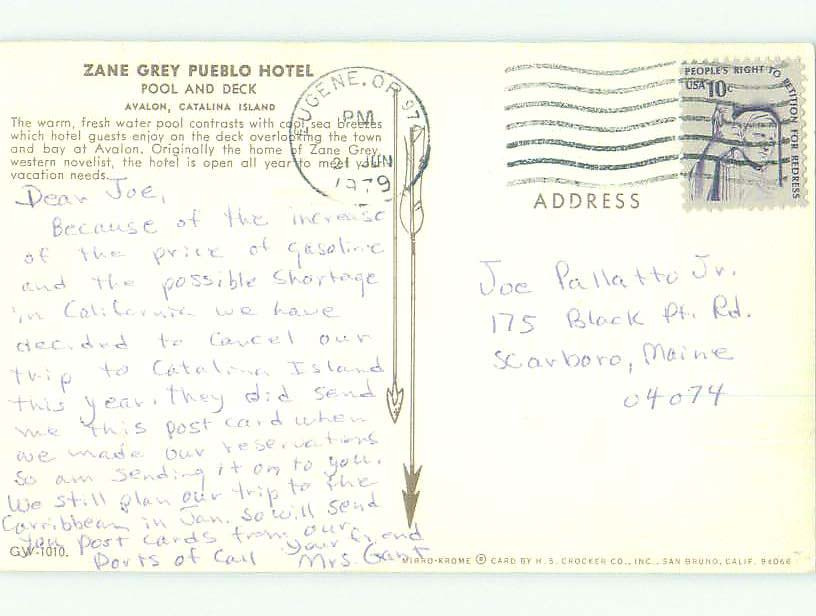 ZANE GREY PUEBLO HOTEL
POOL AND DECK
AVALON, CATALINA ISLAND
The warm, fresh water pool contrasts with cool sea breezes
which hotel guests enjoy on the deck overlooking the town
and bay at Avalon. Originally the home of Zane Grey,
western novelist, the hotel is open all year to meet your
vacation needs.
Dear Joe,
Because of the increase
of the price of gasoline
and the possible shortage
in California we have
decided to cancel our
trip to Catalina Island
this year. They did send
me this post card when
we made our reservations
so am sending it on to you.
We still plan our trip to the
Carribbean in Jan. so will send
you post cards from our
Ports of Call
your friend
Mrs. Gant
GW-1010.
EUGENE, OR 974
PM
21 JUN
1979
PEOPLE'S RIGHT TO PETITION FOR REDRESS
USA 10c
ADDRESS
Joe Pallatto Jr.
175 Black Pt. Rd.
Scarboro, Maine
04074
MIRRO-KROME ® CARD BY H. S. CROCKER CO., INC., SAN BRUNO, CALIF. 94066